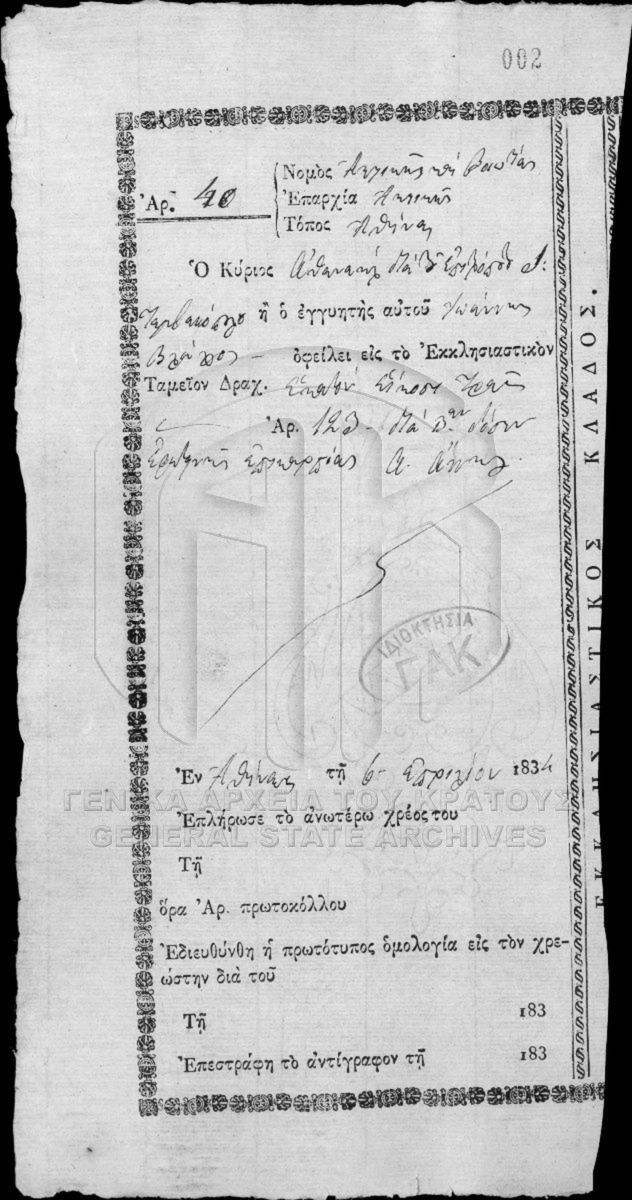 002
Ἀρ. 40
Νομὸς Ἀττικῆς καὶ Βοιωτίας
Ἐπαρχία Ἀττικῆς
Τόπος Ἀθήνας
Ὁ Κύριος διὰ τοῦ ἐπιτρόπου
ἢ ὁ ἐγγυητὴς αὐτοῦ Ἰωάννης
Βλάχος – ὀφείλει εἰς τὸ Ἐκκλησιαστικὸν
Ταμεῖον Δραχ. ἑκατὸν εἴκοσι τρεῖς
Ἀρ. 123 – διὰ δόσιν
Α. Ἄννης.
Ἐν Ἀθήναις τῇ 6 Ἀπριλίου 1834
Ἐπλήρωσε τὸ ἀνωτέρω χρέος του
Τῇ
ὅρα Ἀρ. πρωτοκόλλου
Ἐδιευθύνθη ἡ πρωτότυπος ὁμολογία εἰς τὸν χρε-
ώστην διὰ τοῦ
Τῇ 183
Ἐπεστράφη τὸ ἀντίγραφον τῇ 183
ΕΚΚΛΗΣΙΑΣΤΙΚΟΣ ΚΛΑΔΟΣ.
ΙΔΙΟΚΤΗΣΙΑ
ΓΑΚ
ΓΕΝΙΚΑ ΑΡΧΕΙΑ ΤΟΥ ΚΡΑΤΟΥΣ
GENERAL STATE ARCHIVES